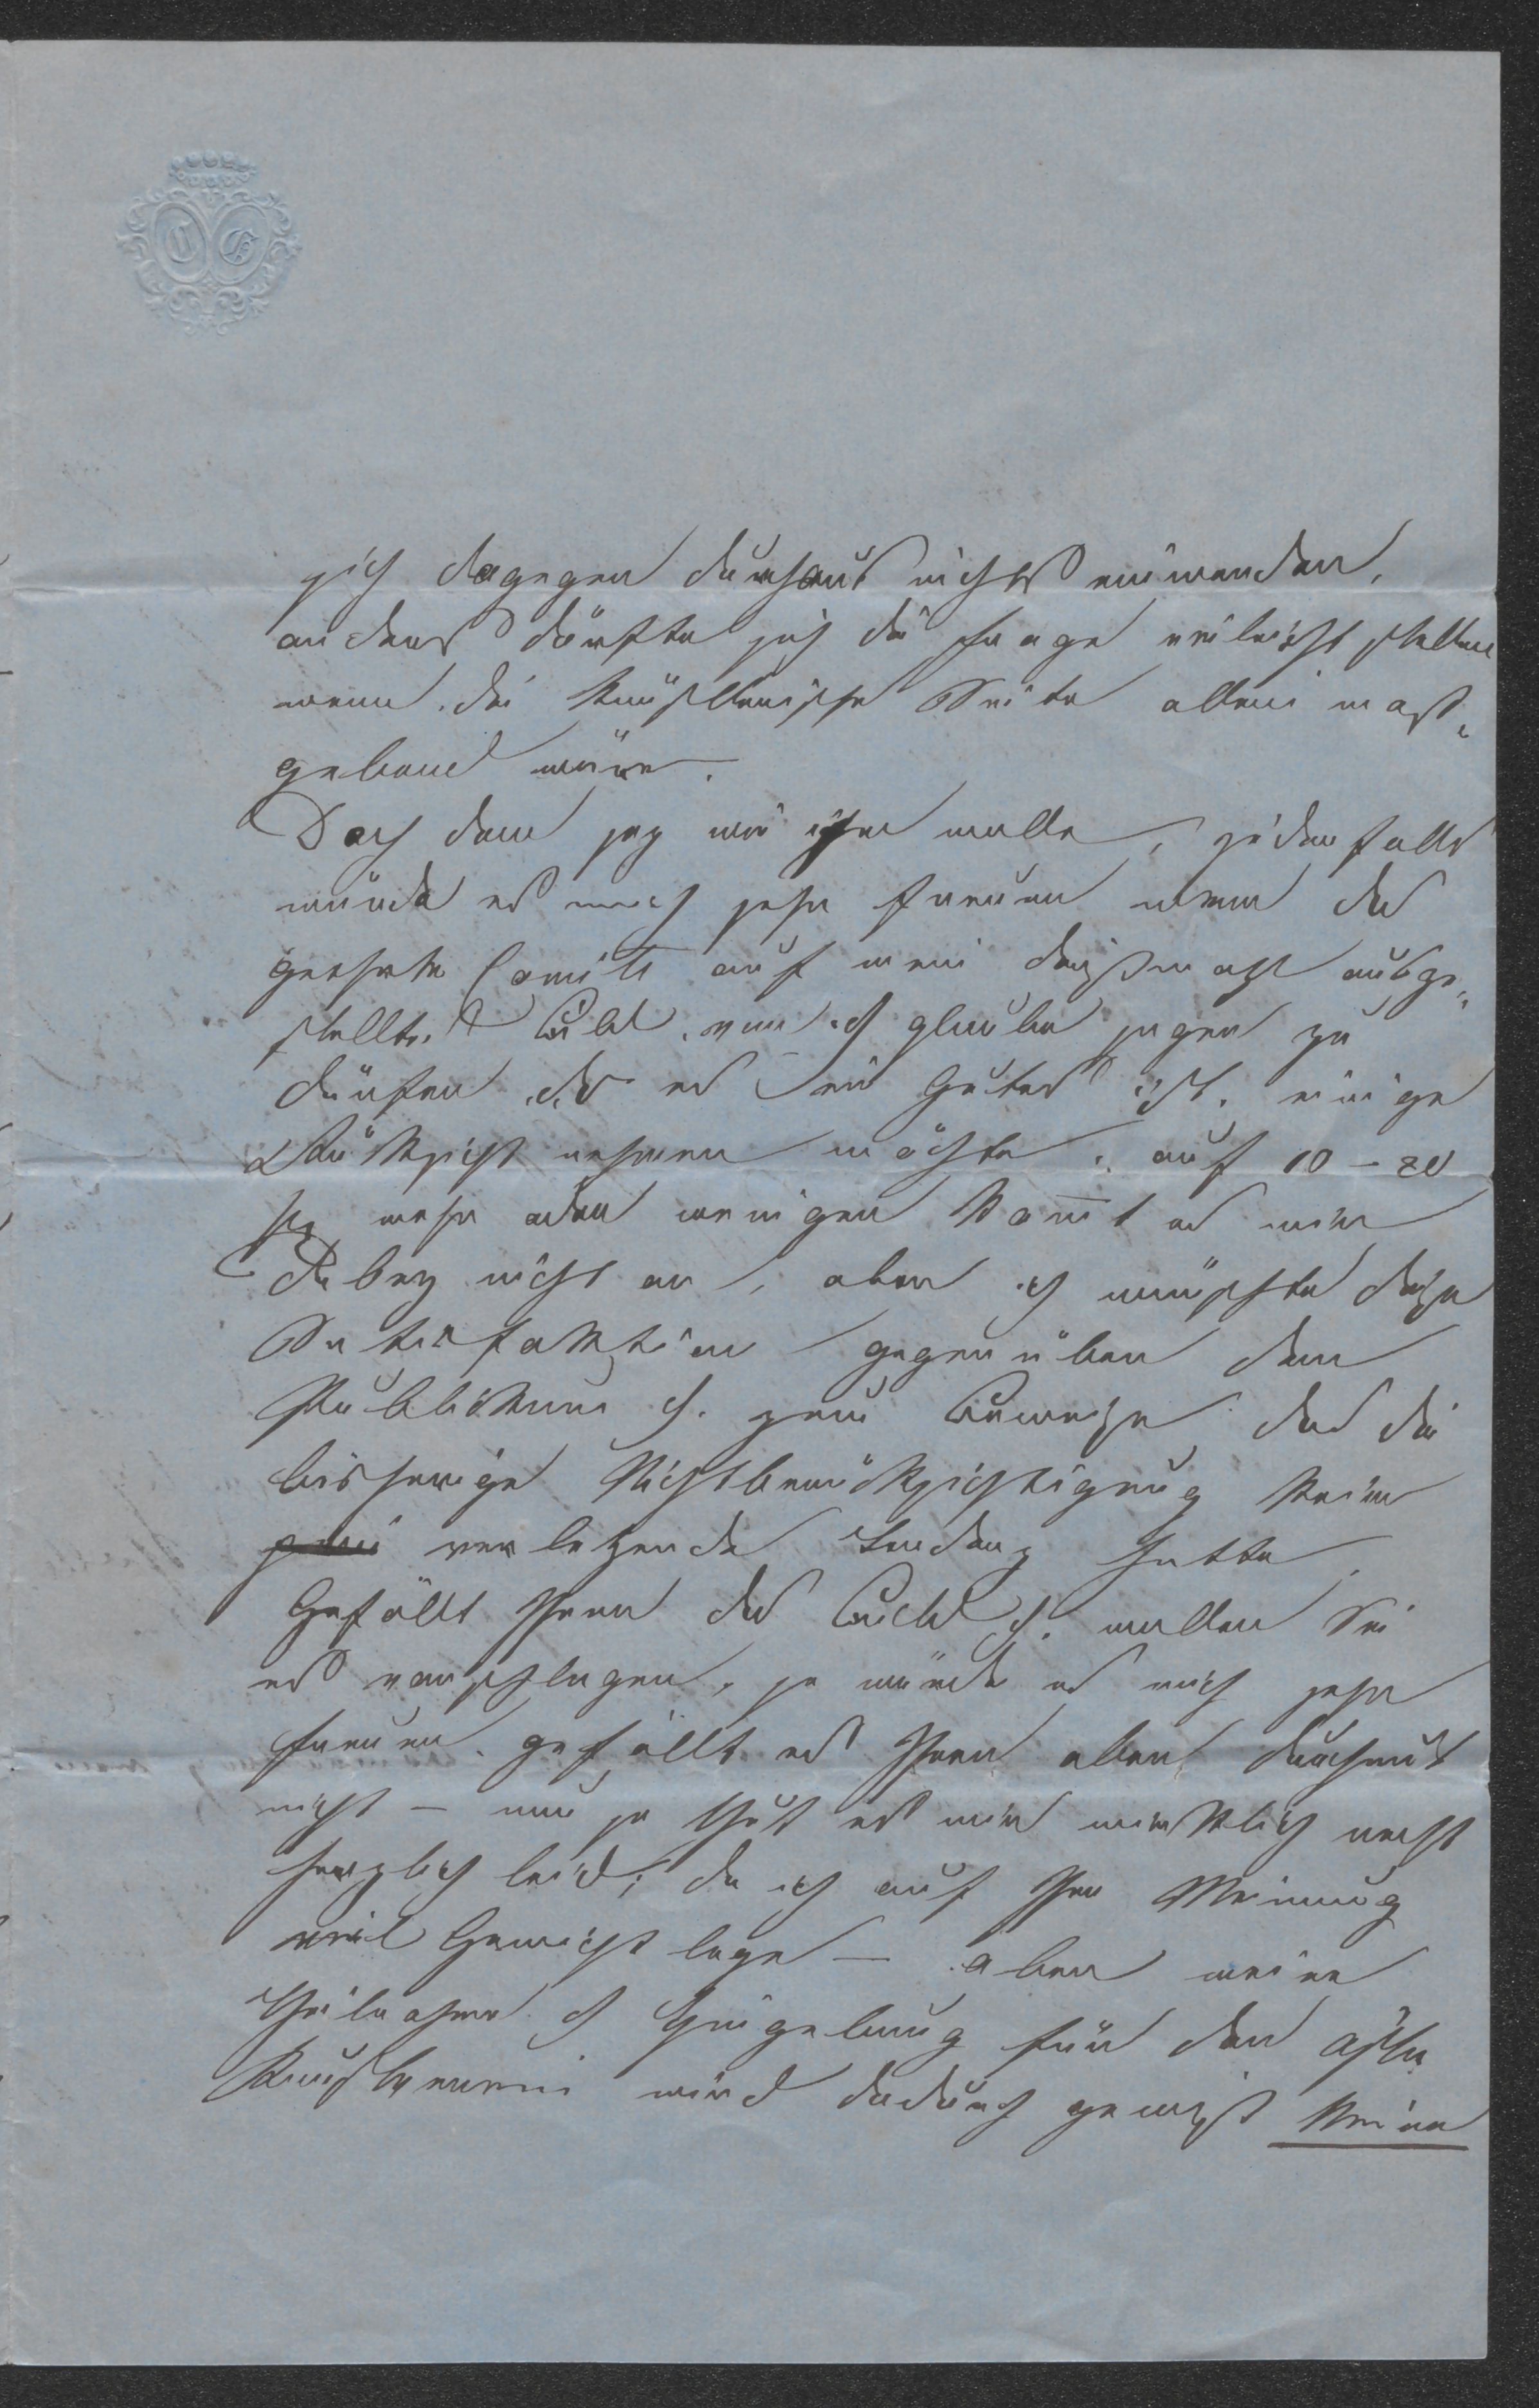 C G
sich dagegen durchaus nichts einwenden,
anders dürfte sich die Frage vieleicht stellen
wenn die künstlerische Seite allein maß-
gebend wäre.
Doch dem sey wie ihm wolle, jedenfalls
würde es mich sehr freuen wenn das
geehrte Comité auf mein dießmahl ausge-
stelltes Bild, von ich glaube sagen zu
dürfen, das es ein Gutes ist, einige
Rüksicht nehmen möchte, auf 10 – 20
mehr oder weniger kom̄t es mir
dabey nicht an, aber ich wünschte diese
Satisfaktion gegenüber dem
Publikum u. zum Beweise das die
bisherige Nichtberüksichtigung keine
verletzende Tendenz hatte.
Gefällt Ihnen das Bild u. wollen Sie
es vorschlagen, so würde es mich sehr
freuen. gefällt es Ihnen aber durchaus
nicht – nun so thut es mir wirklich recht
herzlich leid, da ich auf Ihre Meinung
viel Gewicht lege – aber meine
Theilnahme u Hingebung für den östr.
Kunstverein wird dadurch gewiß keine